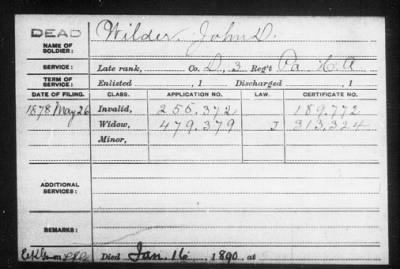 DEAD
NAME OF SOLDIER:
Wilder, John D.
SERVICE:
Late rank, Co. D, 3 Reg't Pa H A
TERM OF SERVICE:
Enlisted , 1 Discharged , 1
DATE OF FILING. CLASS. APPLICATION NO. LAW. CERTIFICATE NO.
1878 May 26 Invalid, 255.372 189.772
Widow, 479.379 J 313.324
Minor,
ADDITIONAL SERVICES:
REMARKS:
Died Jan. 16 1890, at